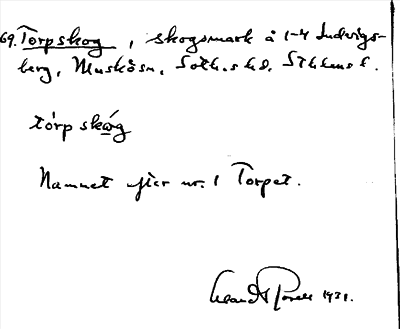 69. Torpskog, skogsmark å 1-4 Ludvigs-
berg, Muskö sn, Soth. s hd, Sthlms l.
tórp skóg
Namnet efter nr. 1 Torpet.
1931.